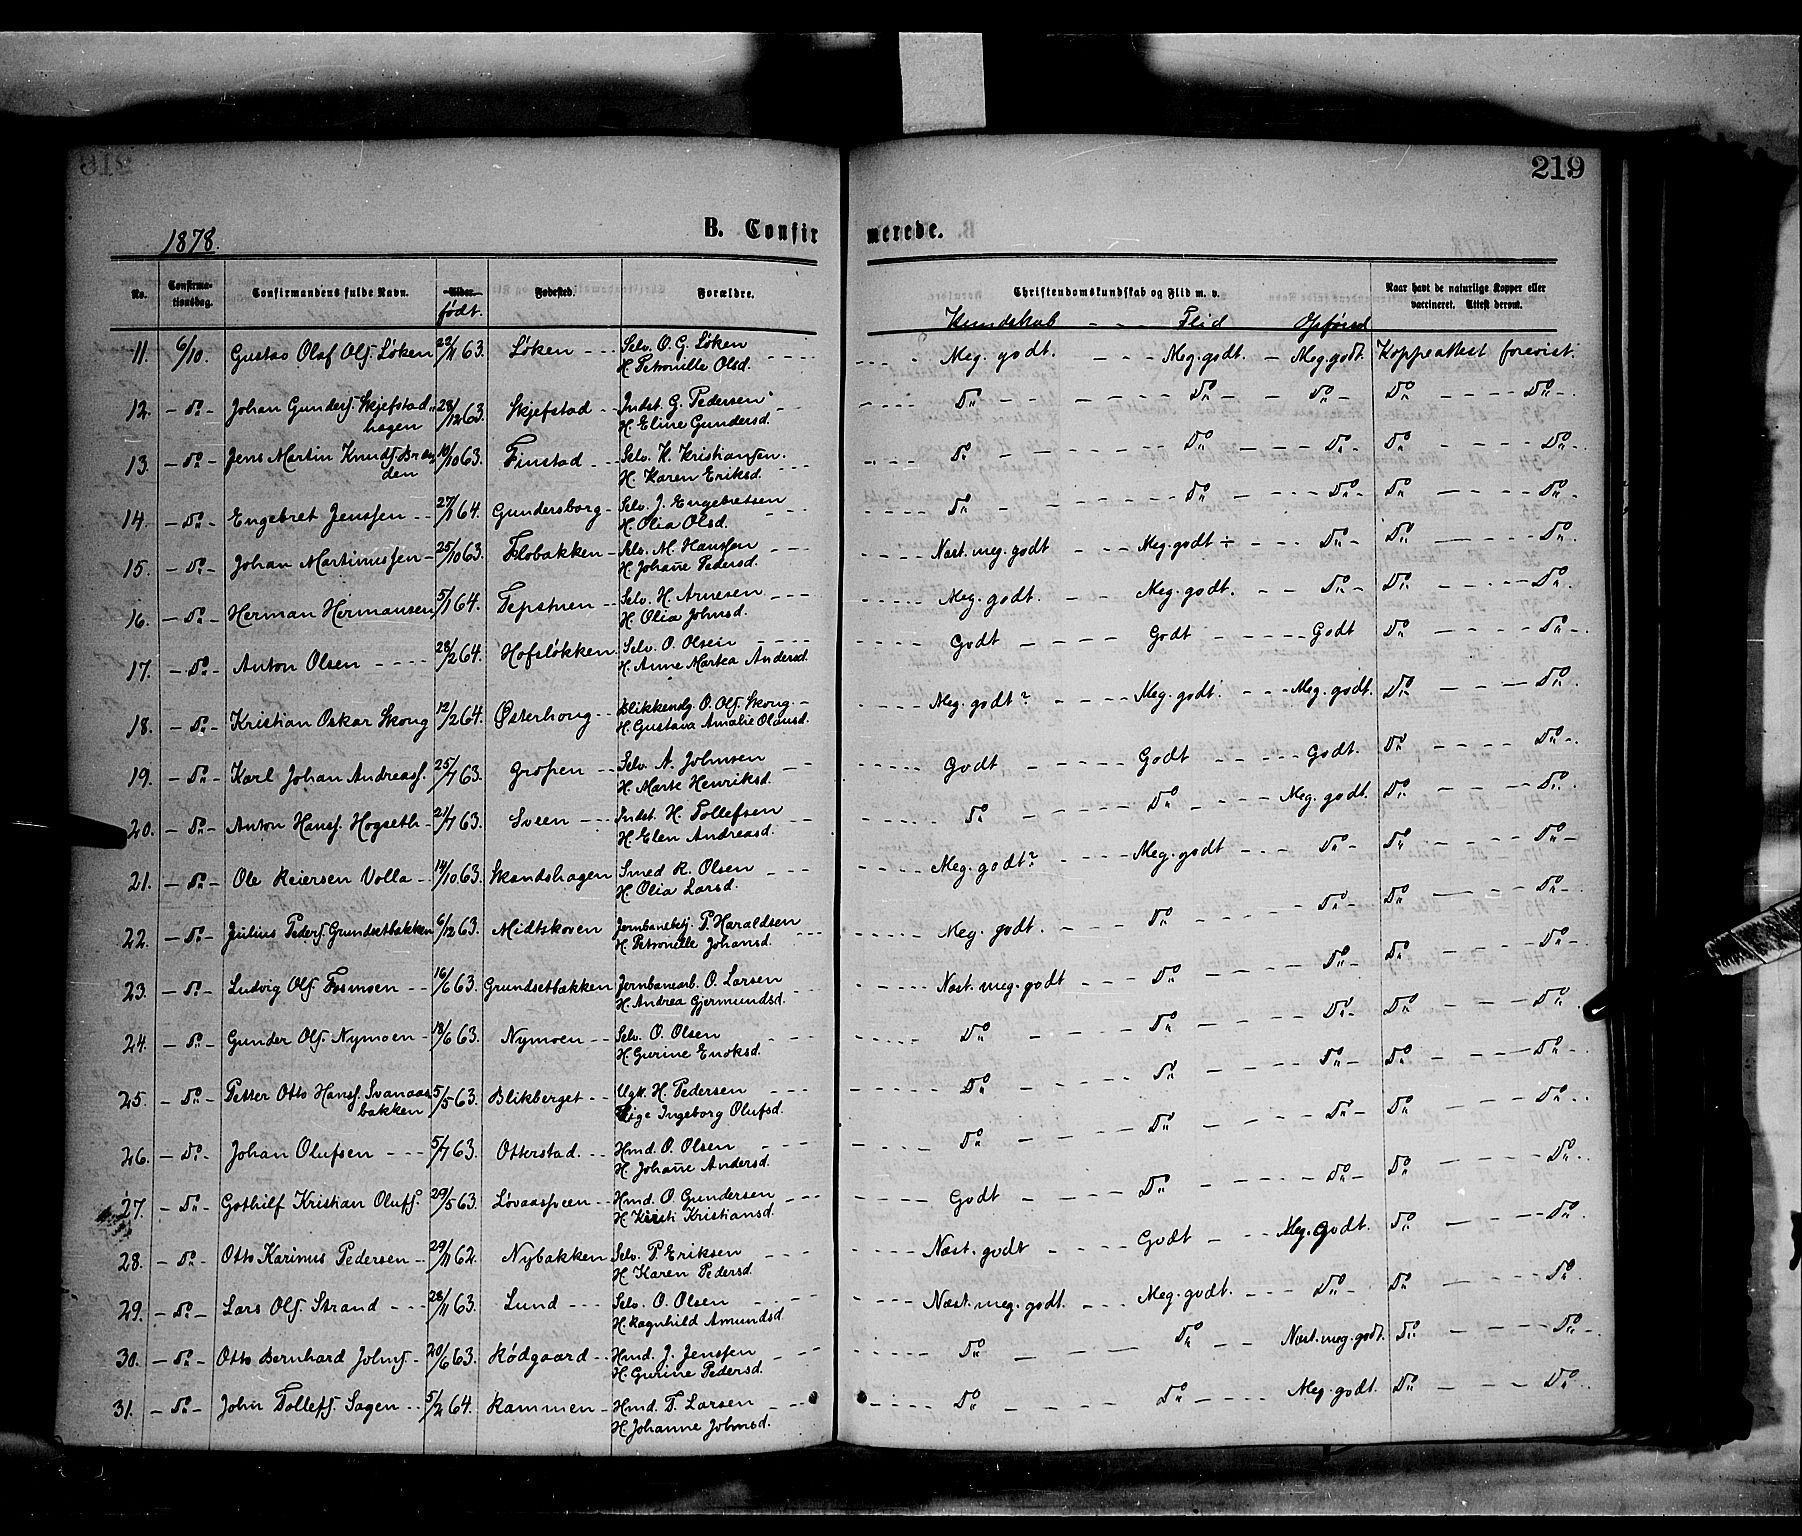 219
1878.
B. Confirmerede.
No. Confirmationsdag. Confirmandens fulde Navn. Alder. født. Fødested. Forældre. Christendomskundskab og Flid m. v. Naar havt de naturlige Kopper eller vaccineret. Attest derom.
Kundskab - - - Flid Opførsel
11. 6/10. Gustav Olaf Olsf. Løken 22/11 63. Løken - - - Selv. O. G. Løken Meg. godt. - - - Meg. godt. - Meg. godt. Koppeattest forevist.
H. Petronille Olsd.
12. - Do - Johan Gundersf. Skjefstad- 28/12 63. Skjefstad - - Indst. G. Pedersen Do - - - - Do - - Do - Do - - - Do -
hagen H. Eline Gundersd.
13. - Do - Jens Martin Knudsf. Braa- 10/10 63. Finstad - - - Selv. K. Kristiansen. Do - - - Do - - Do - Do - - - Do -
den H. Karen Eriksd.
14. - Do - Engebret Jenssen - - 27/1 64. Gundersborg - Selv. J. Engebretsen Do - - - Do - - - Do - Do - - - Do -
H. Olia Olsd.
15. - Do - Johan Martinussen - 25/10 63. Flobakken - Selv. M. Hanssen Næst. meg. godt - - Meg. godt ÷ - - Do - Do - - - Do -
H. Johañe Pedersd.
16. - Do - Herman Hermansen 5/1 64. Tepstuen - - Selv. H. Arnesen Meg. godt. - - - Meg. godt. - - Do - Do - - - Do -
H. Olia Johnsd.
17. - Do - Anton Olsen - - - - 28/2 64. Hofsløkken Selv. O. Olsen Godt - - - - Godt - - - - Godt Do - - - Do -
H. Anne Marthea Andersd.
18. - Do - Kristian Oskar Skong 12/2 64. Østerhoug - - Blikkendg. O. Olsf. Skong - Meg. godt? - - - Meg. godt. - - - Meg. godt. Do - - - Do -
H. Gustava Amalie Olausd.
19. - Do - Karl Johan Andreasf. 25/7 63. Grofsen - - Selv. A. Johnsen Godt - - - - Godt - - - - Godt. Do - - - Do -
H. Marte Henriksd.
20. - Do - Anton Hansf. Hogseth - 21/7 63. Sveen - - - Indst. H. Tollefsen Do - - - Do - - - Meg. godt. Do - - - Do -
H. Elen Andreasd.
21. - Do - Ole Reiersen Volla - 14/10 63. Skandshagen Smed R. Olsen Meg. godt? - - - Meg. godt - - Do - Do - - - Do -
H. Olia Larsd.
22. - Do - Julius Pedersf. Grundsetbakken 6/12 63. Midtskoven Jernbanebetj. P. Haraldsen Meg. godt. - - - Do - - - Do - Do - - - Do -
H. Petronelle Johansd.
23. - Do - Ludvig Olsf. Fosmoen - - 16/6 63. Grundsetbakken Jernbanearb. O. Larsen Næst. meg. godt - - Do - - - Do - Do - - - Do -
H. Andrea Gjermundsd.
24. - Do - Gunder Olsf. Nymoen - 18/6 63. Nymoen - - Selv. O. Olsen Do - - - Do - - - Do - Do - - - Do -
H. Gurine Enoksd.
25. - Do - Petter Otto Hansf. Svanaas- 5/5 63. Blikberget - - Ugk. H. Pedersen Do - - - Do - - - Do - Do - - - Do -
bakken Pige Ingeborg Olufsd.
26. - Do - Johan Olufsen - - - 5/7 63. Otterstad - - Hmd. O. Olsen Do - - - Do - - - Do - Do - - - Do -
H. Johañe Andersd.
27. - Do - Gothilf Kristian Olufsf. 29/5 63. Løvaassveen - - Hmd. O. Gundersen Godt - - - Do - - - Do - Do - - - Do -
H. Kirsti Kristiansd.
28. - Do - Otto Karinus Pedersen - - 29/11 62. Nybakken Selv. P. Eriksen Næst. godt - - - Godt - - - Meg. godt. Do - - - Do -
H. Karen Pedersd.
29. - Do - Lars Olsf. Strand - - - 28/11 63. Lund - - - Selv. O. Olsen Næst. meg. godt. - - - Meg. godt. - - Do - Do - - - Do -
H. Ragnhild Amundsd.
30. - Do - Otto Bernhard Johnsf. - 20/6 63. Rødgaard - - Hmd. J. Jenssen Do - - - Do - - Næst. meg. godt. Do - - - Do -
H. Gurine Pedersd.
31. - Do - John Tollefsf. Sagen - - 5/2 64. Rammen - Hmd. T. Larsen Do - - - Do - - - Meg. godt. Do - - - Do -
H. Johanne Johnsd.